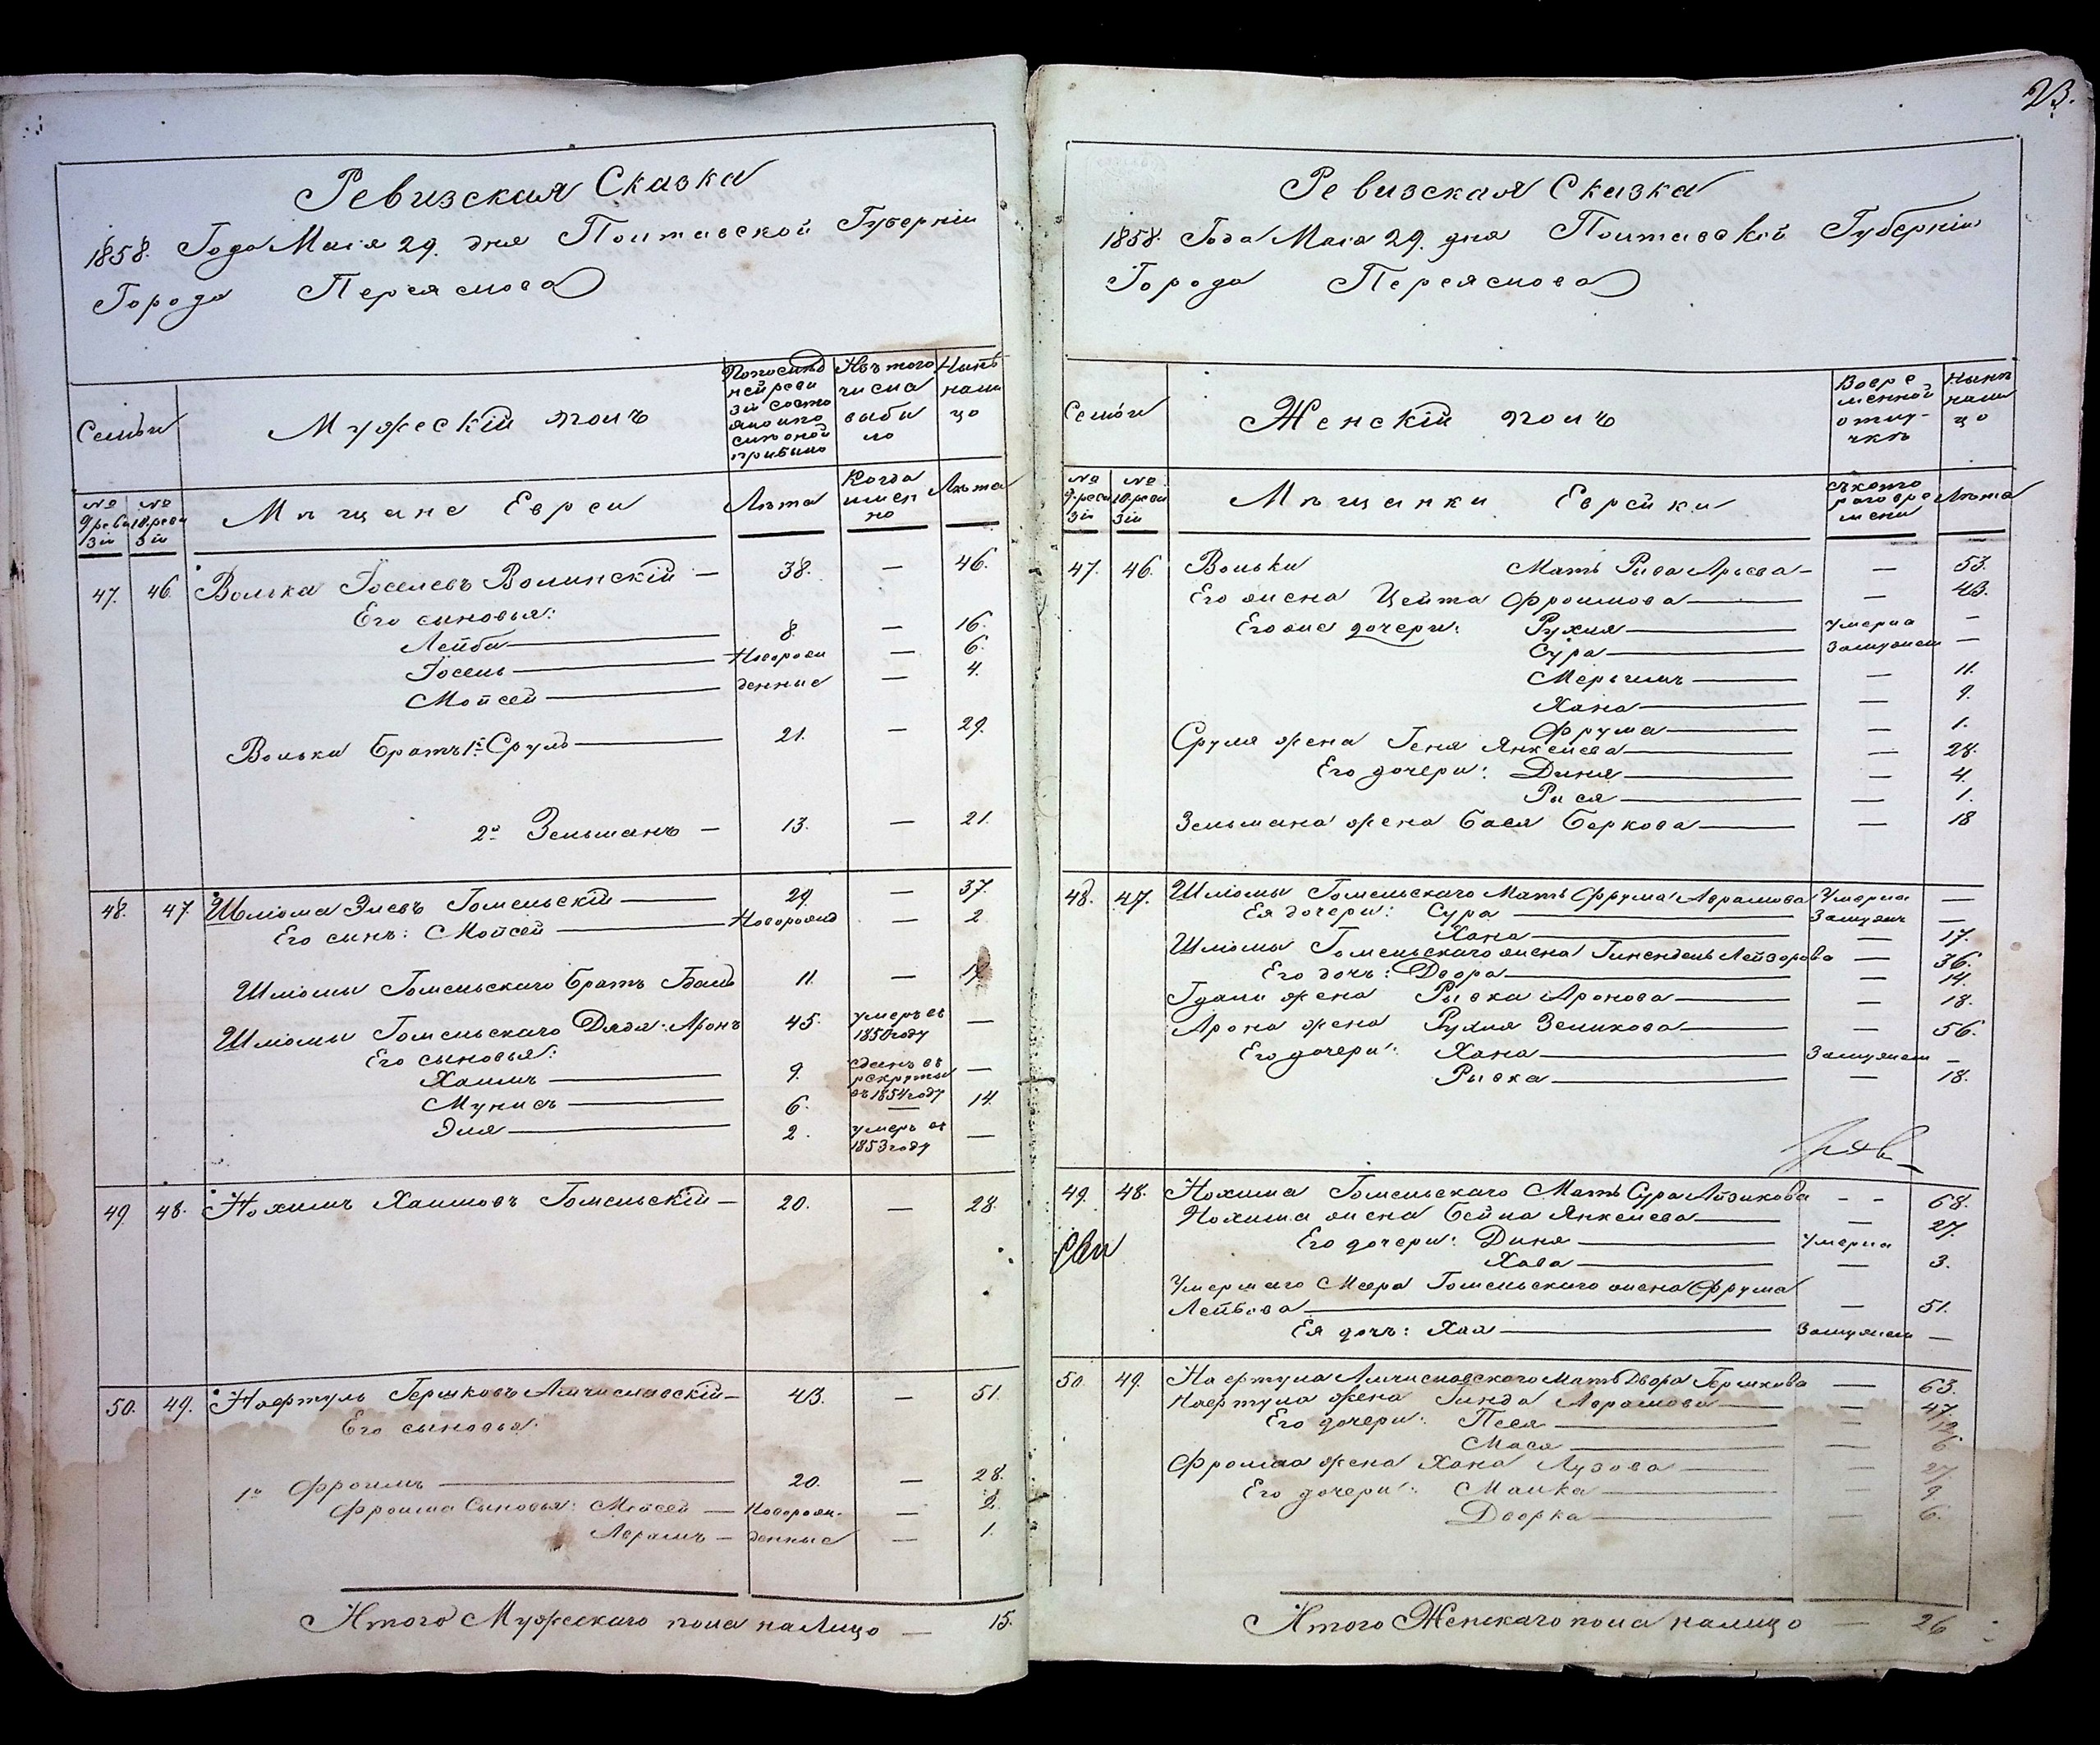 23.
Ревизская Сказка
1858. Года Маія 29. дня Полтавской Губерніи
Города Переяслова
Семьи
Мужескій полъ
По послѣд
ней реви
зіи состо
яло и по
слѣ оной
прибыло
Изъ того
числа
выбы
ло
Нынѣ
нали
цо
№ 9 реви зіи
№ 10 реви зіи
Мѣщане Евреи
Лѣта
Когда
имен
но
Лѣта
47. 46. Волька Іоселевъ Волинскій — 38. — 46.
Его сыновья:
Лейба 8. — 16.
Іосель Новорож — 6.
Мойсей денные — 4.
Вольки Братъ 1й Сруль 21. — 29.
2й Зельманъ — 13. — 21.
48. 47. Шліома Элевъ Гомельскій 29. — 37.
Его сынъ: Мойсей Новорожд — 2.
Шліомы Гомельскаго Братъ Гдаль 11. —
Шліомы Гомельскаго Дядя: Аронъ 45. умеръ въ —
1850 году
Его сыновья:
Хаимъ 9. сданъ въ —
рекруты
въ 1854 году
Мунисъ 6. — 14.
Эля 2. умеръ въ —
1853 году
49. 48. Нохимъ Хаимовъ Гомельскій — 20. — 28.
50. 49. Нафтуль Гершковъ — 43. — 51.
Его сыновья:
1й Фроимъ 20. — 28.
Фроима Сыновья: Мойсей — Новорож- — 2.
Абрамъ — денные — 1.
Итого Мужескаго пола налицо — 15.
Ревизская Сказка
1858. Года Маія 29. дня Полтавской Губерніи
Города Переяслова
Семьи
Женскій полъ
Во вре
менной
отлу-
чкѣ
Нынѣ
нали
цо
№ 9. реви зіи
№ 10. реви зіи
Мѣщанки Еврейки
съ кото
раго вре
мени
Лѣта
47. 46. Вольки Мать Рива Арьева — — 53.
Его жена Цейта Фроимова — 43.
Его же дочери: Рухля умерла —
Сура Замужем —
Мерьимъ — 11.
Хана — 9.
Фрума — 1.
Сруля жена Геня Янкелева — 28.
Его дочери: Диня — 4.
Рися — 1.
Зельмана жена Бася Беркова — 18
48. 47. Шліомы Гомельскаго Мать Фрума Абрамова Умерла —
Ея дочери: Сура Замужем —
Хана — 17.
Шліомы Гомельскаго жена Гинендель Лейзорова — 36.
Его дочь: Двора — 14.
Гдаля жена Рывка Аронова — 18.
Арона жена Рухля Зеликова — 56.
Его дочери: Хана Замужем —
Рывка — 18.
49. 48. Нохима Гомельскаго Мать Сура Айзикова - - 68.
Нохима жена Бейла Янкелева — 27.
Его дочери: Диня Умерла
Хава — 3.
Умершаго Меера Гомельскаго жена Фрума
Лейбова — 51.
Ея дочь: Хая Замужем —
50. 49. Нафтула Мать Двора Гершкова — 63.
Нафтула жена Гинда Абрамова — 47
Его дочери: Песя — 12
Мася — 6
Фроима жена Хана Лузова — 27
Его дочери: Малка — 9
Дворка — 6.
Итого Женскаго пола налицо — 26